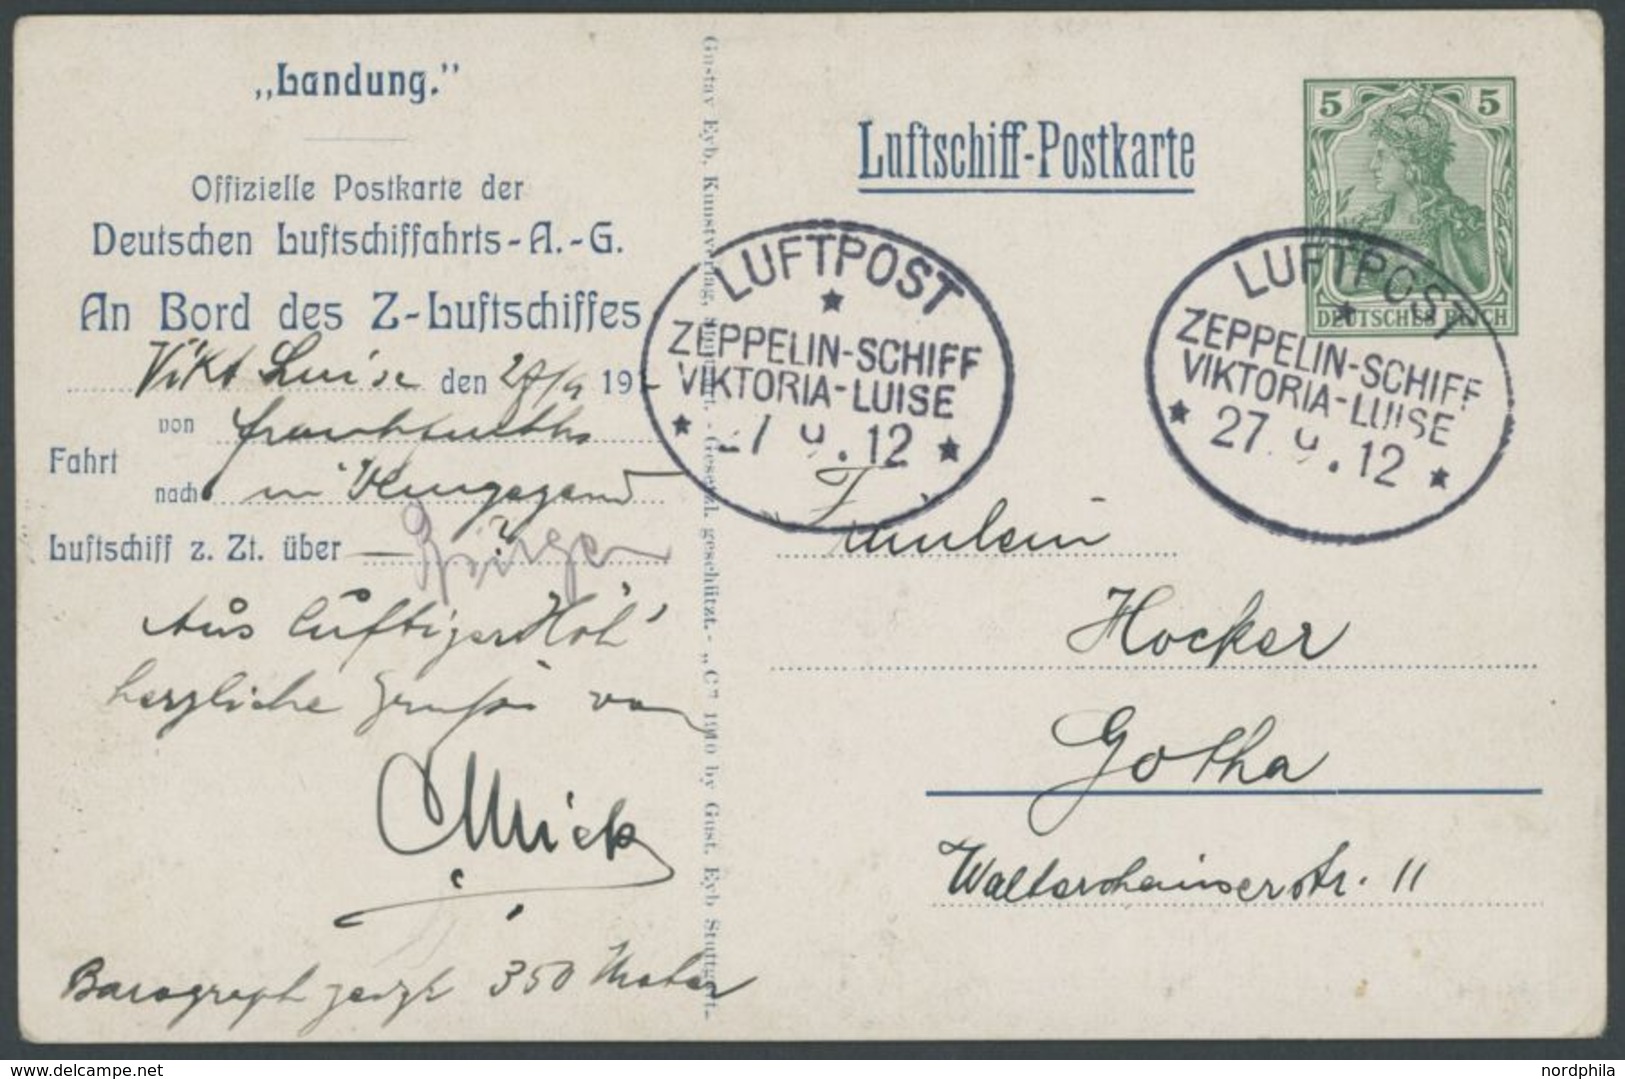 „Landung."
Offizielle Postkarte der
Deutschen Luftschiffahrts-A.-G.
An Bord des Z-Luftschiffes
Vikt Luise den 27/9 191
von
Fahrt
nach in
Luftschiff z. Zt. über
Aus luftiger Höh'
herzliche Grüße von
Barograph zeigt 350 Meter
Gustav Eyb, Kunstverlag, Stuttgart. - Gesetzl. geschützt. - „C" 1910 by Gust. Eyb Stuttgart.
Luftschiff-Postkarte
5 5
DEUTSCHES REICH
LUFTPOST
ZEPPELIN-SCHIFF
VIKTORIA-LUISE
27 9.12
LUFTPOST
ZEPPELIN-SCHIFF
VIKTORIA-LUISE
27.9.12
Fräulein
Hocker
Gotha
Waltershauserstr. 11
nordphila
https://www.delcampe.net